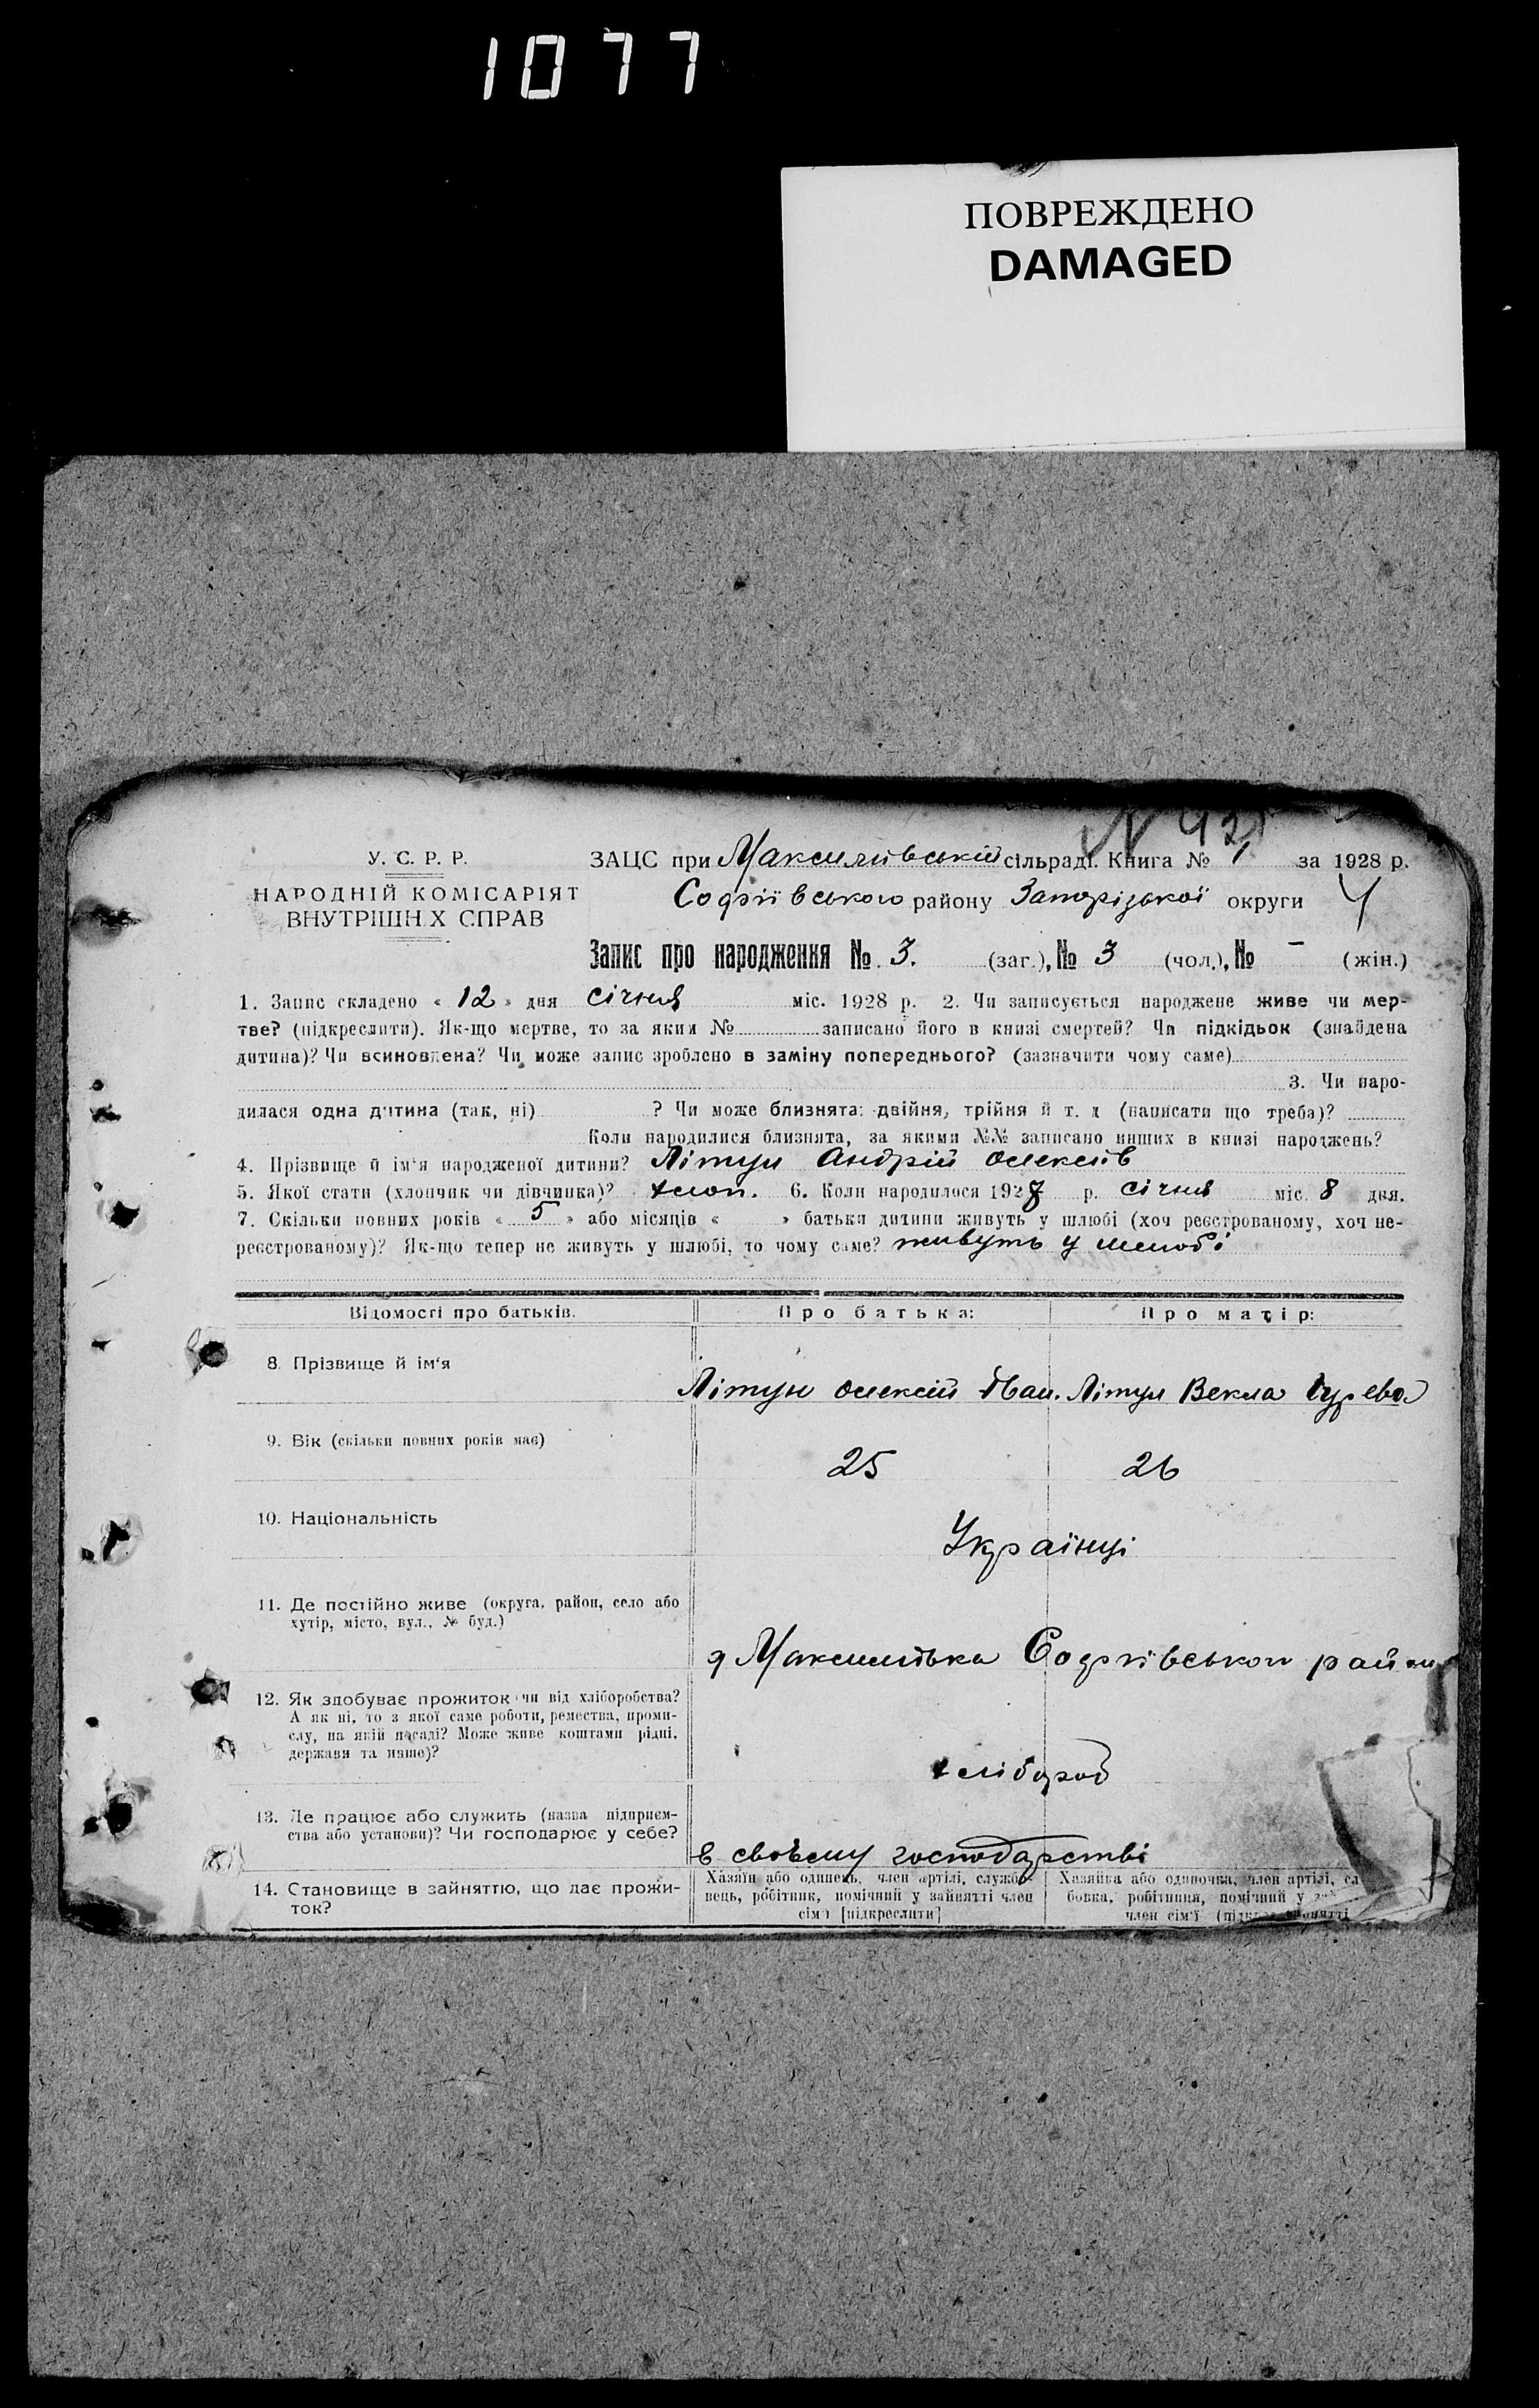 1077
ПОВРЕЖДЕНО
DAMAGED
N 421
У. С. Р. Р.
НАРОДНІЙ КОМІСАРІЯТ
ВНУТРІШН Х СПРАВ
ЗАЦС при Максимівській сільраді. Книга № 1 за 1928 р.
Софіївського району Запорізької округи 4
Запис про народження № 3. (заг.), № 3 (чол.), № – (жін.)
1. Запис складено « 12 » дня січня міс. 1928 р. 2. Чи записується народжене живе чи мер-
тве? (підкреслити). Як-що мертве, то за яким № записано його в книзі смертей? Чи підкідьок (знайдена
дитина)? Чи всиновлена? Чи може запис зроблено в заміну попереднього? (зазначити чому саме)
3. Чи наро-
дилася одна дитина (так, ні) ? Чи може близнята: двійня, трійня й т. д (написати що треба)?
Коли народилися близнята, за якими №№ записано инших в книзі народжень?
4. Прізвище й ім'я народженої дитини? Літун Андрій Олексіїв
5. Якої стати (хлопчик чи дівчинка)? хлоп. 6. Коли народилося 1928 р. січня міс. 8 дня.
7. Скільки повних років « 5 » або місяців « » батьки дитини живуть у шлюбі (хоч реєстрованому, хоч не-
реєстрованому)? Як-що тепер не живуть у шлюбі, то чому саме? живуть у шлюбі
Відомості про батьків. Про батька: Про матір:
8. Прізвище й ім'я Літун Олексій Іван. Літун Векла
9. Вік (скільки повних років має) 25 26
10. Національність Українці
11. Де постійно живе (округа, район, село або
хутір, місто, вул., № буд.)
д Максимівка Софіївського району
12. Як здобуває прожиток чи від хліборобства?
А як ні, то з якої саме роботи, ремества, проми-
слу, на якій посаді? Може живе коштами рідні,
держави та инше)?
хлібороб
13. Де працює або служить (назва підприєм-
ства або установи)? Чи господарює у себе?
в своьему господарстві
14. Становище в зайняттю, що дає прожи-
ток?
Хазяїн або одинець, член артілі, службо-
вець, робітник, помічний у зайнятті член
сім'ї [підкреслити]
Хазяйка або одиночка, член артілі, сл
бовка, робітниця, помічний у
член сім'ї